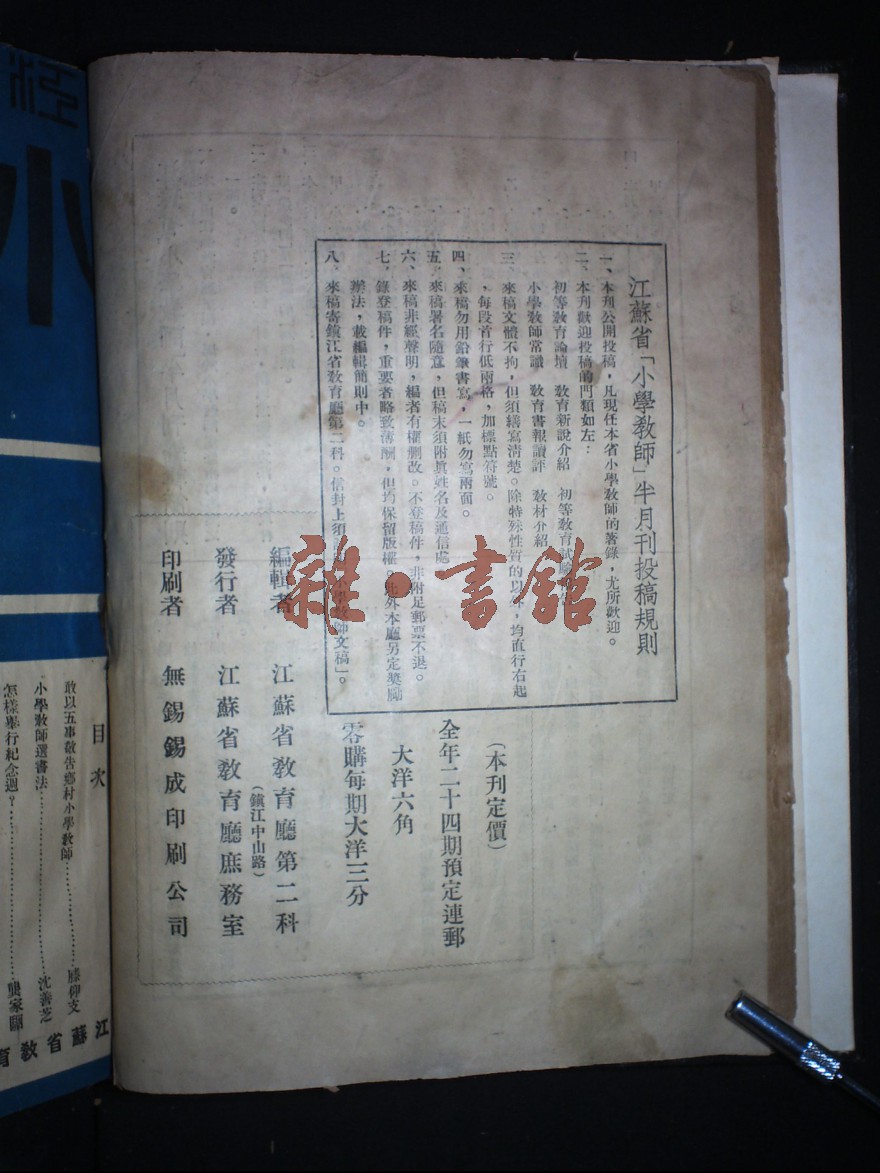 江蘇省「小學教師」半月刊投稿規則
一、本刊公開投稿，凡現任本省小學教師的著錄，尤所歡迎。
二、本刊歡迎投稿的門類如左：
初等教育論壇　教育新說介紹　初等教育試驗
小學教師常識　教育書報讀評　教材介紹
三、來稿文體不拘，但須繕寫清楚。除特殊性質的以外，均直行右起
，每段首行低兩格，加標點符號。
四、來稿勿用鉛筆書寫，一紙勿寫兩面。
五、來稿署名隨意，但稿末須附眞姓名及通信處
六、來稿非經聲明，編者有權刪改。不登稿件，非附足郵票不退。
七、錄登稿件，重要者略致薄酬，但均保留版權。此外本廳另定獎勵
辦法，載編輯簡則中。
八、來稿寄鎭江省教育廳第二科。信封上須 教師文稿」。
（本刊定價）
全年二十四期預定連郵
大洋六角
零購每期大洋三分
編輯者　江蘇省教育廳第二科
（鎭江中山路）
發行者　江蘇省教育廳庶務室
印刷者　無錫錫成印刷公司
雜·書館
小
目次
敢以五事敬告鄉村小學教師…………滕仰支
小學教師選書法…………沈善芝
怎樣舉行紀念週？…………龔家
江蘇省教育